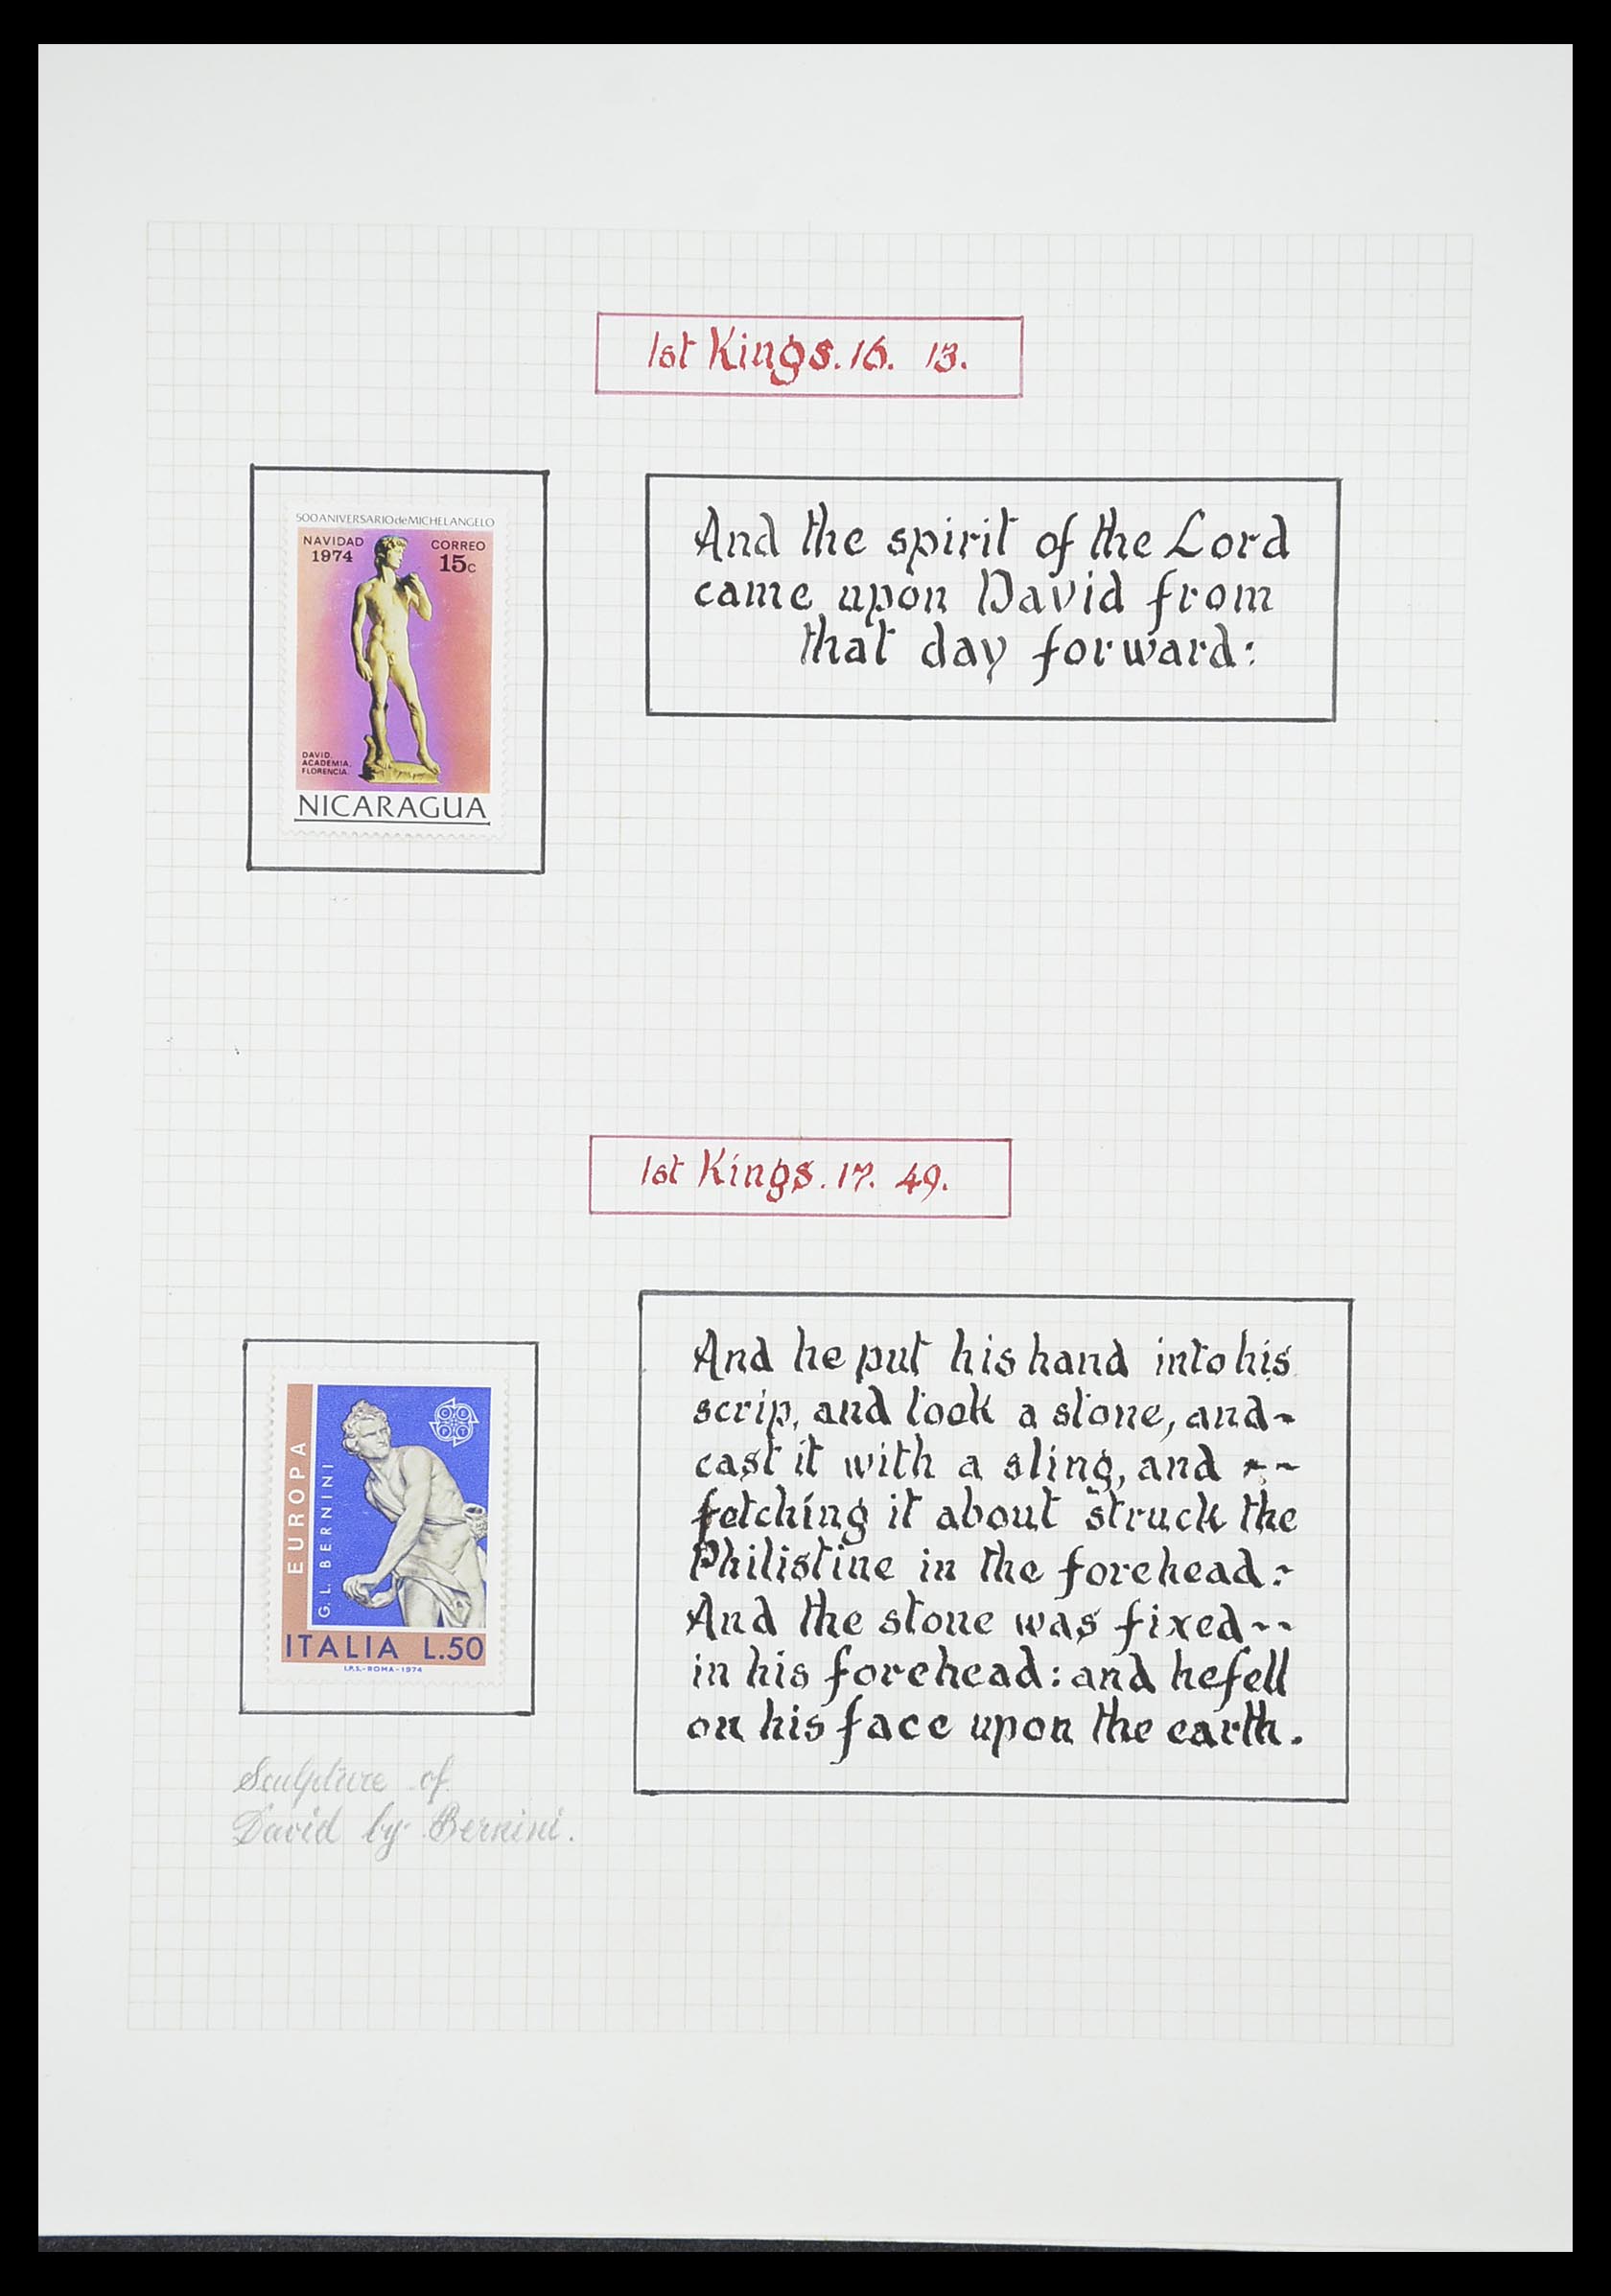 1st Kings. 16. 13.
500 ANIVERSARIO de MICHELANGELO
NAVIDAD
1974
CORREO
15c
DAVID.
ACADEMIA.
FLORENCIA.
NICARAGUA
And the spirit of the Lord
came upon David from
that day forward:
1st Kings. 17. 49.
EUROPA
G. L. BERNINI
CEPT
ITALIA L.50
I.P.S.-ROMA-1974
Sculpture of
David by Bernini.
And he put his hand into his
scrip, and took a stone, and-
cast it with a sling, and --
fetching it about struck the
Philistine in the forehead:
And the stone was fixed--
in his forehead: and he fell
on his face upon the earth.